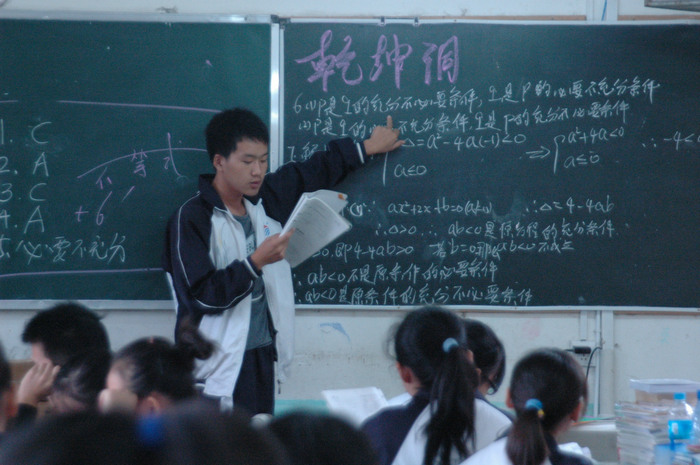 1. C
2. A
3. C
4. A
5. 必要不充分
不等式
+6'
乾坤洞
6. (1) P是q的充分不必要条件, q是P的必要不充分条件
(2) P是q的必要不充分条件. q是P的充分不必要条件
7. 解 △=a²-4a(-1)<0
a≤0
⇒ a²+4a<0
a≤0
∴ -4<
∵ ax²+2x+b=0 ∴△=4-4ab
∴△>0. ∴ab<0是原方程的充分条件
>0. 即4-4ab>0 若b=0则ab<0不成立
∴ab<0不是原条件的必要条件
∴ab<0是原条件的充分不必要条件